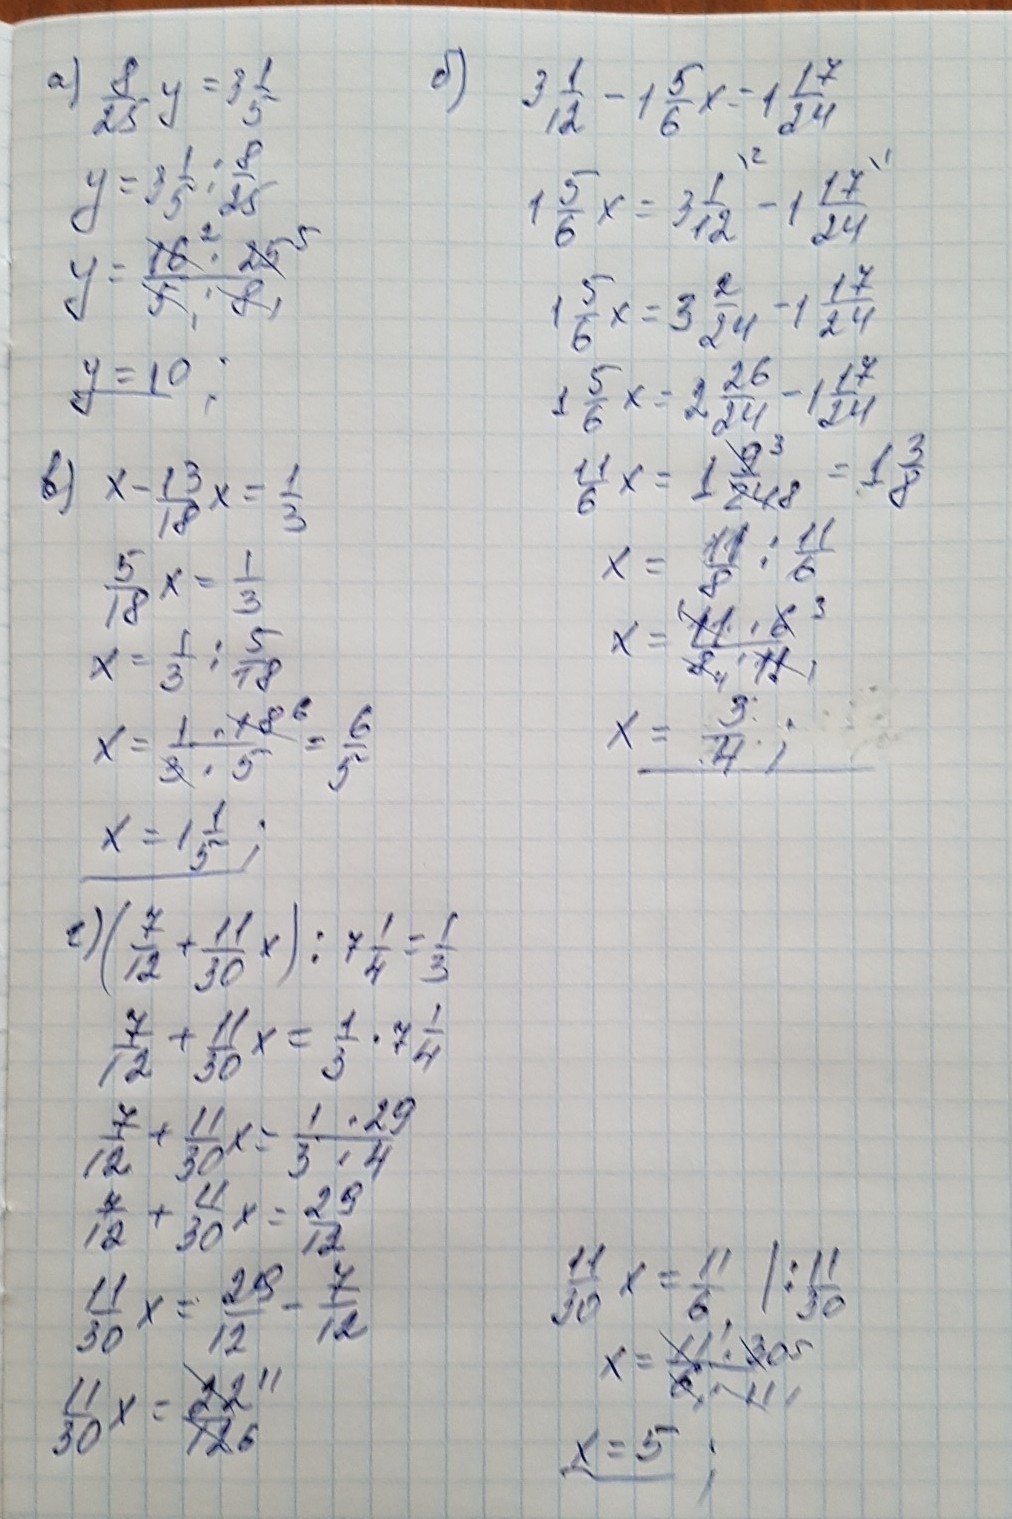 а) 8/25 y = 3 1/5
y = 3 1/5 : 8/25
y = 16² · 25⁵ / 5₁ · 8₁
y = 10 ;
б) 3 1/12 - 1 5/6 x = 1 17/24
1 5/6 x = 3 1/12 \² - 1 17/24 \¹
1 5/6 x = 3 2/24 - 1 17/24
1 5/6 x = 2 26/24 - 1 17/24
11/6 x = 1 9³/24₈ = 1 3/8
x = 11/8 : 11/6
x = ¹11 · 6³ / 8₄ · 11₁
x = 3/4 ;
в) x - 13/18 x = 1/3
5/18 x = 1/3
x = 1/3 : 5/18
x = 1 · 18⁶ / 3 · 5 = 6/5
x = 1 1/5 ;
г) (7/12 + 11/30 x) : 7 1/4 = 1/3
7/12 + 11/30 x = 1/3 · 7 1/4
7/12 + 11/30 x = 1 · 29 / 3 · 4
7/12 + 11/30 x = 29/12
11/30 x = 29/12 - 7/12
11/30 x = 22¹¹/12₆
11/30 x = 11/6 | : 11/30
x = 11¹ · 30⁵ / 6₁ · 11₁
x = 5 ;